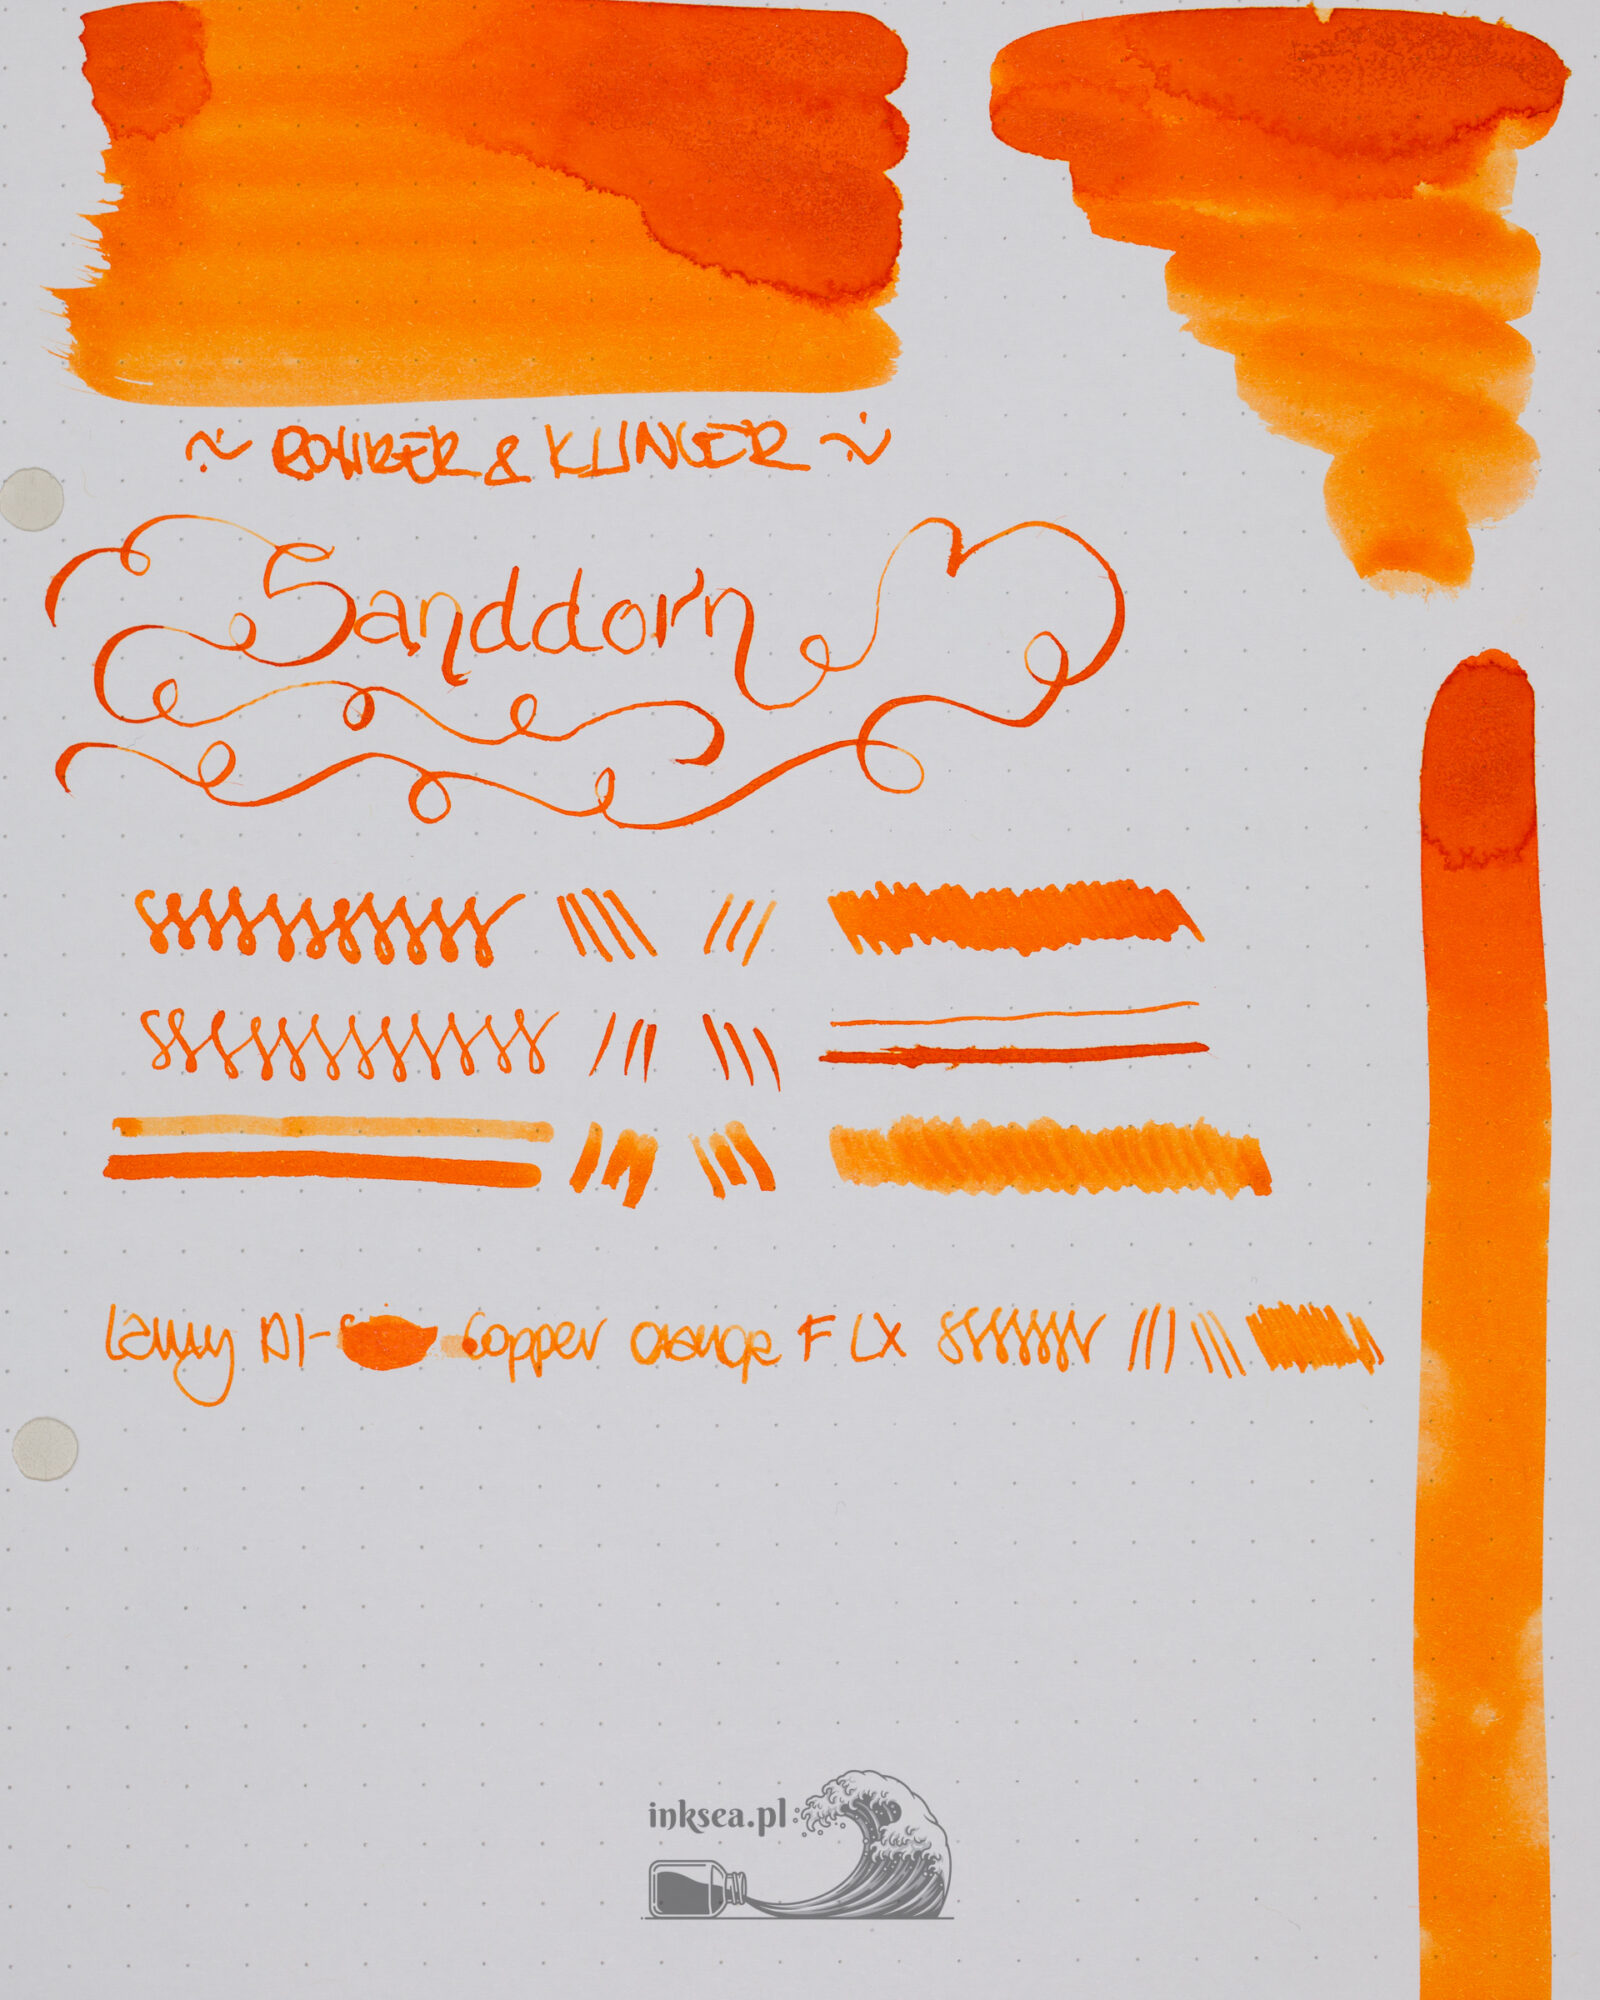 ~ ROHRER & KLINGER ~
Sanddorn
Lamy Al- Copper orange F LX
inksea.pl